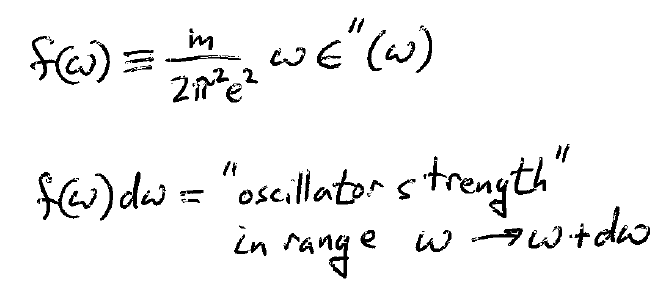 f(ω) ≡ m/2π²e² ω ϵ"(ω)
f(ω)dω = "oscillator strength"
in range ω → ω+dω